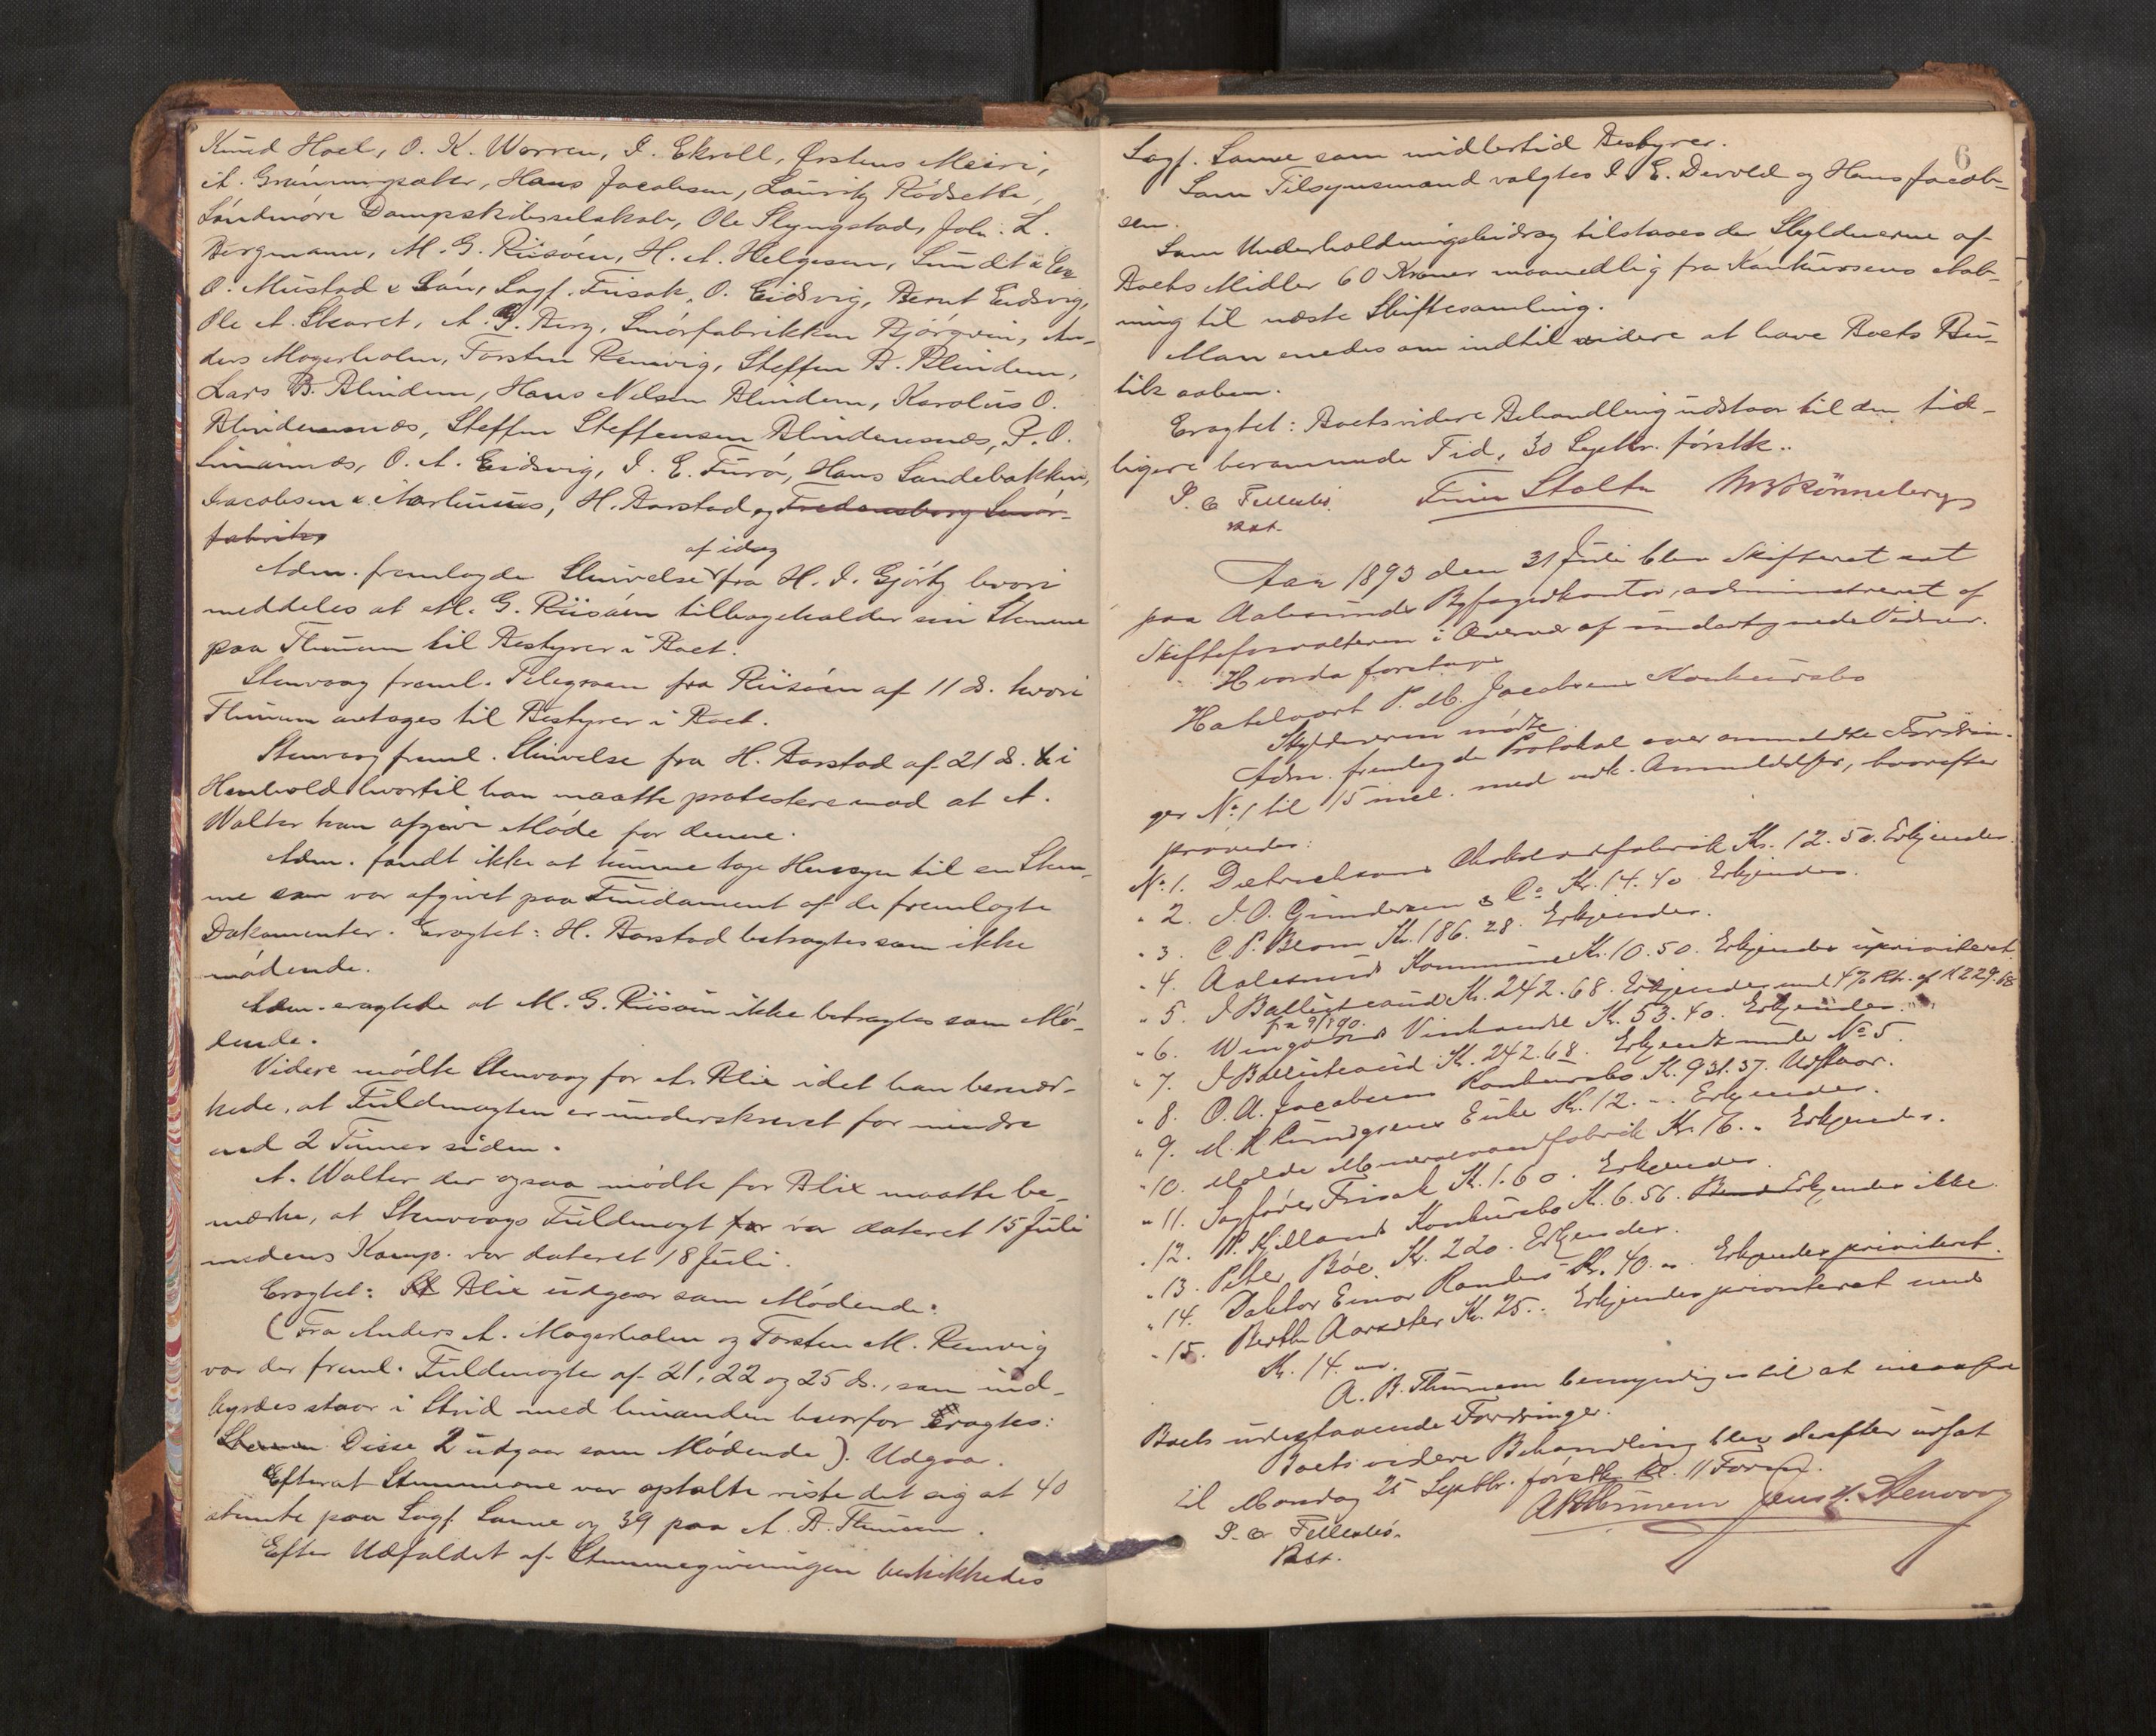 Knud Hoel, O. K. Warren, I. Ekroll, Ørstens Meieri,
A. Grønningsæter, Hans Jacobsen, Lauritz Rødsette,
Søndmøre Dampskibsselskab, Ole Slyngstad, Joh. L.
Bergmann, M. G. Riisøen, H. A. Helgesen, Sundt & Co
O. Mustad & Søn, Sagf. Frisak, O. Eidsvig, Bernt Eidsvig,
Ole A. Skaret, A. G. Berg, Smørfabrikken Bjørgvin, An-
ders Magerholm, Torsten Remvig, Steffen B. Blindem,
Lars B. Blindem, Hans Nilsen Blindem, Karolus O.
Blindemnæs, Steffen Steffensen Blindemsnæs, P. O.
Simannæs, O. A. Eidsvig, I. E. Furø, Hans Sandebakken,
Jacobsen & Martinius, H. Aarstad og Fredensborg Smør-
fabrik,
af idag
Adm. fremlagde Skrivelse fra H. I. Gjørtz hvori
meddeles at M. G. Riisøen tilbageholder sin Stemme
paa Thunem til Bestyrer i Boet.
Stenvaag freml. Telegram fra Riisøen af 11 ds. hvori
Thunem antages til Bestyrer i Boet.
Stenvaag freml. Skrivelse fra H. Aarstad af 21 ds. i
Henhold hvortil han maatte protestere mod at A.
Walter kan afgive Møde for denne.
Adm. fandt ikke at kunne tage Hensyn til en Stem-
me som var afgivet paa Fundament af de fremlagte
Dokumenter. Eragtet: H. Aarstad betragtes som ikke
mødende.
Adm. eragtede at M. G. Riisøen ikke betragtes som Mø-
dende.
Videre mødte Stenvaag for A. Blix idet han bemær-
kede, at Fuldmagten er underskrevet for mindre
end 2 Timer siden.
A. Walter der ogsaa mødte for Blix maatte be-
mærke, at Stenvaags Fuldmagt var dateret 15 Juli
medens Komp. var dateret 18 Juli.
Eragtet: Blix udgaar som Mødende.
(Fra Anders A. Magerholm og Torsten M. Remvig
var der freml. Fuldmagter af 21, 22 og 25 ds., som ind-
byrdes staar i Strid med hinanden hvorfor Eragtes:
Disse 2 udgaar som Mødende). Udgaar.
Efterat Stemmerne var optalte viste det sig at 40
stemte paa Sagf. Sanne og 39 paa A. B. Thunem.
Efter Udfaldet af Stemmegivningen beskikkedes
6
Sagf. Sanne som midlertid Bestyrer.
Som Tilsynsmænd valgtes I. E. Devold og Hans Jacob-
sen.
Som Underholdningsbidrag tilstaaes der Skyldnerne af
Boets Midler 60 Kroner maanedlig fra Konkursens Aab-
ning til næste Skiftesamling.
Man enedes om indtil videre at have Boets Bu-
tik aaben.
Eragtet: Boets videre Behandling udstaar til den tid-
ligere berammede Tid, 30 Septbr. førstk..
Finn Stoltz Rønneberg
Aar 1893 den 31 Juli blev Skifteret sat
paa Aalesunds Byfogedkontor, administreret af
Skifteforvalteren i Overvær af undertegnede Vidner.
Hvorda foretoges
Hotelvært P. M. Jacobsens Konkursbo
Skyldneren mødte
Adm. fremlagde Protokol over anmeldte Fordrin-
ger No 1 til 15 incl. med vedk. Anmeldelser, hvorefter
prøvedes:
No 1. Dietrichsons Chokoladefabrik Kr. 12.50. Erkjendes.
" 2. J. O. Gundersen & Co Kr. 14.40 Erkjendes.
" 3. C. P. Blom Kr. 186.28. Erkjendes.
" 4. Aalesunds Kommune Kr. 10.50. Erkjendes uprioriteret.
" 5. I Ballesteaud Kr. 242.68. Erkjendes med 4% Rt. af K 229.68
fra 9/8 90.
" 6. Vinhandel K. 53.40. Erkjendes.
" 7. I Ballesteaud K. 242.68. Erkjendt under No 5.
" 8. O. A. Jacobsens Konkursbo K. 931.37. Udstaar.
" 9. M. H. Lundgrens Enke Kr. 12. - Erkjendes.
" 10. Molde Mineralvandfabrik Kr. 16. - Erkjendes.
" 11. Sagfører Frisak K. 1.60. Erkjendes.
" 12. P. Kjellands Konkursbo K. 6.56. Erkjendes ikke.
" 13. Peter Bøe Kr. 220. Erkjendes.
" 14. Doktor Einar Randers Kr. 40. - Erkjendes prioriteret.
" 15. Berthe Aarseter Kr. 25. - Erkjendes prioriteret med
Kr. 14. -
A. B. Thunem bemyndiges til at inddrive
Boets udestaaende Fordringer.
Boets videre Behandling blev derefter udsat
til Mandag 25 Septbr. førstk. Kl. 11 Form.
A B Thunem Jens H. Stenvaag